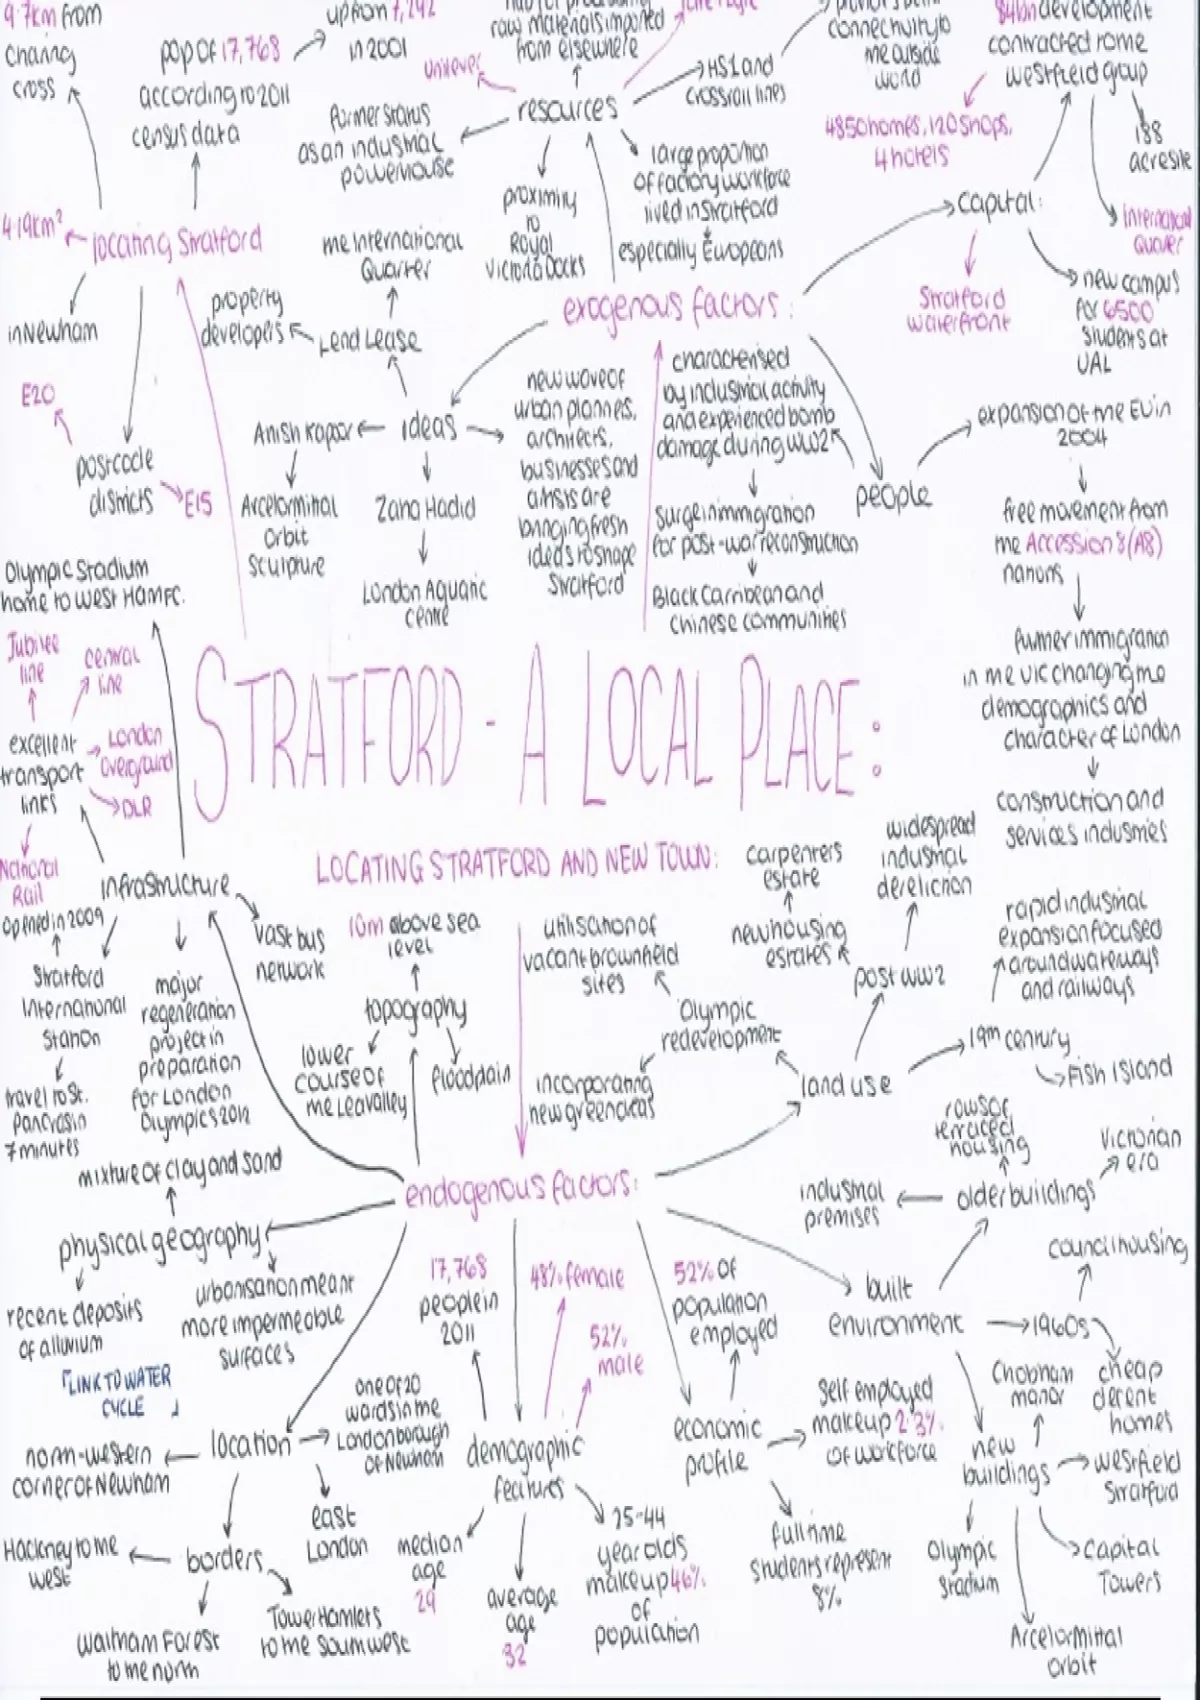 9.7km from
charing
cross
pop of 17,768
according to 2011
census data
up from 7,292
in 2001
raw materials imported
from elsewhere
Unilever
resources
former status
as an industrial
powerhouse
proximity
to
Royal
Victoria Docks
large proportion
of factory workforce
lived in Stratford
especially Europeans
HS1 and
crossrail lines
connectivity to
the outside
world
development
contracted to the
westfield group
4850 homes, 120 shops,
4 hotels
188
acre site
capital:
International
Quarter
Stratford
waterfront
new campus
for 6500
students at
UAL
4.19km²
locating Stratford
in Newham
E20
postcode
districts
E15
the International
Quarter
property
developers
Lend Lease
exogenous factors:
Anish Kapoor
ideas
Arcelormittal
Orbit
Sculpture
Zaha Hadid
London Aquatic
centre
new wave of
urban planners,
architects,
businesses and
artists are
bringing fresh
ideas to shape
Stratford
characterised
by industrial activity
and experienced bomb
damage during WW2
surge in immigration
for post-war reconstruction
Black Carribean and
Chinese communities
people
expansion of the EU in
2004
free movement from
the Accession 8 (A8)
nations
further immigration
in the UK changing the
demographics and
character of London
construction and
services industries
Olympic Stadium
home to West Ham FC.
Jubilee
line
central
line
excellent
transport
links
London
Overground
DLR
National
Rail
STRATFORD - A LOCAL PLACE:
LOCATING STRATFORD AND NEW TOWN:
infrastructure
opened in 2009
Stratford
International
Station
travel to St.
Pancras in
7 minutes
major
regeneration
project in
preparation
for London
Olympics 2012
vast bus
network
10m above sea
level
topography
lower
course of
the Lea valley
floodplain
utilisation of
vacant brownfield
sites
Olympic
redevelopment
incorporating
new green areas
carpenters
estate
new housing
estates
widespread
industrial
dereliction
post WW2
land use
rapid industrial
expansion focused
around waterways
and railways
19th century
Fish Island
endogenous factors:
mixture of clay and sand
physical geography
recent deposits
of alluvium
urbanisation meant
more impermeable
surfaces
LINK TO WATER
CYCLE
rows of
terraced
housing
Victorian
era
industrial
premises
older buildings
council housing
built
environment
1960s
cheap
decent
homes
Chobham
manor
new
buildings
Westfield
Stratford
Olympic
Stadium
Capital
Towers
Arcelormittal
orbit
location
north-western
corner of Newham
one of 20
wards in the
London borough
of Newham
east
London
borders
Hackney to the
west
Waltham Forest
to the north
Tower Hamlets
to the southwest
17,768
people in
2011
48% female
52%
male
demographic
features
median
age
29
average
age
32
25-44
year olds
make up 46%
of
population
52% of
population
employed
economic
profile
Self employed
make up 2.3%
of workforce
full time
students represent
8%